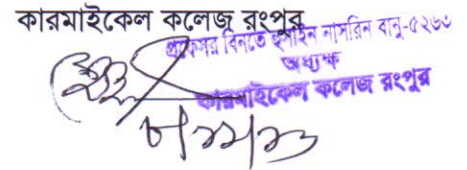 কারমাইকেল কলেজ রংপুর
প্রফেসর বিনতে হুসাইন নাসরিন বানু-৫২৬৩
অধ্যক্ষ
কারমাইকেল কলেজ রংপুর